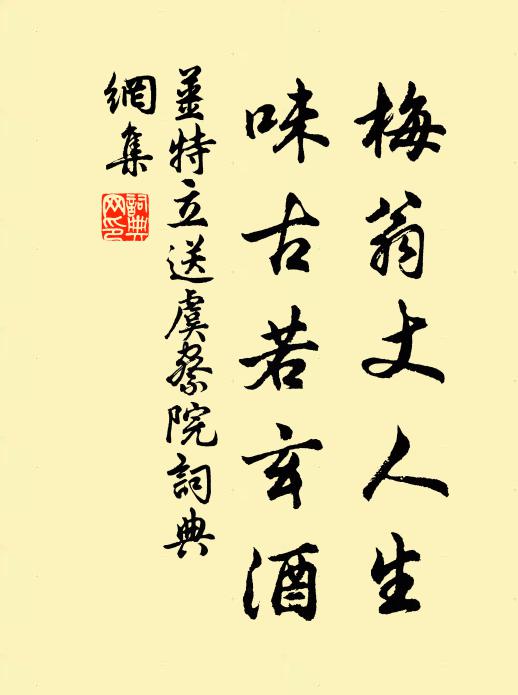 梅翁丈人生
味古若玄酒
姜特立送虞察院詞典
網集
詞典
网印